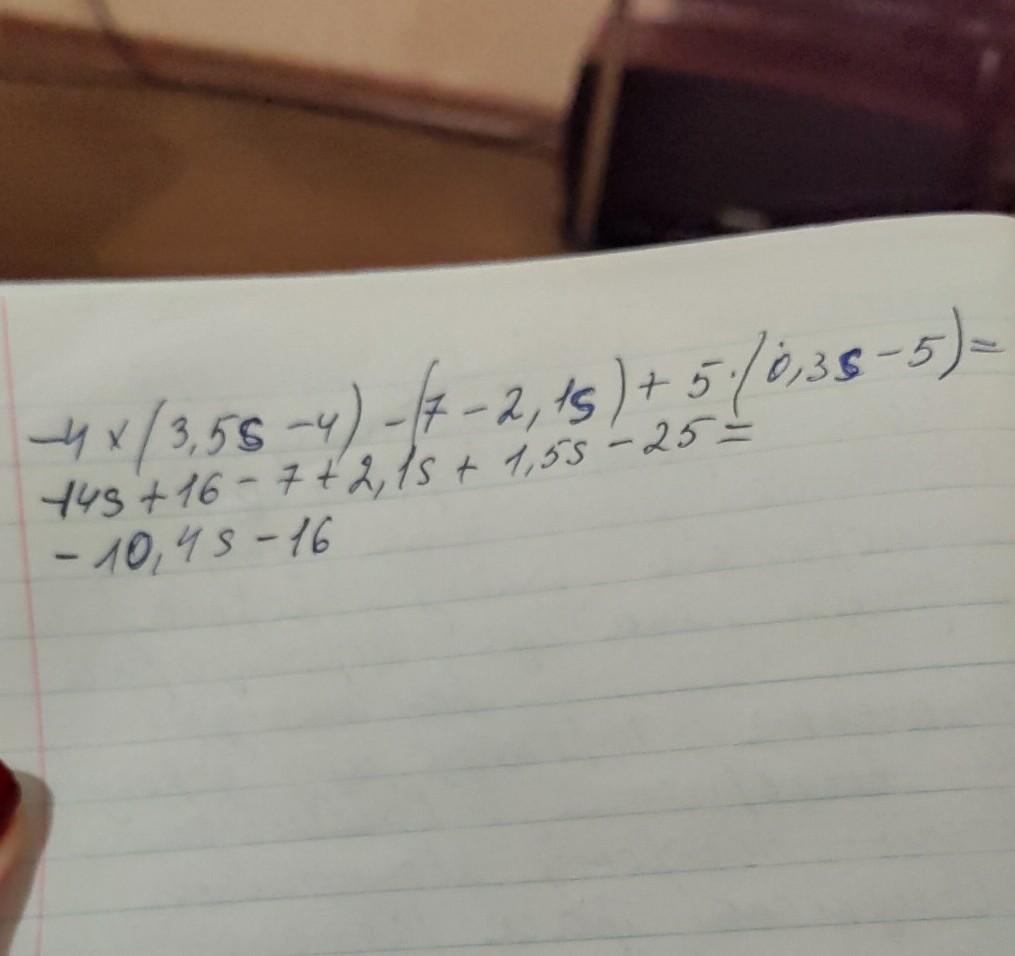 -4 x (3,5s - 4) - (7 - 2,1s) + 5 · (0,3s - 5) =
-14s + 16 - 7 + 2,1s + 1,5s - 25 =
- 10,4s - 16